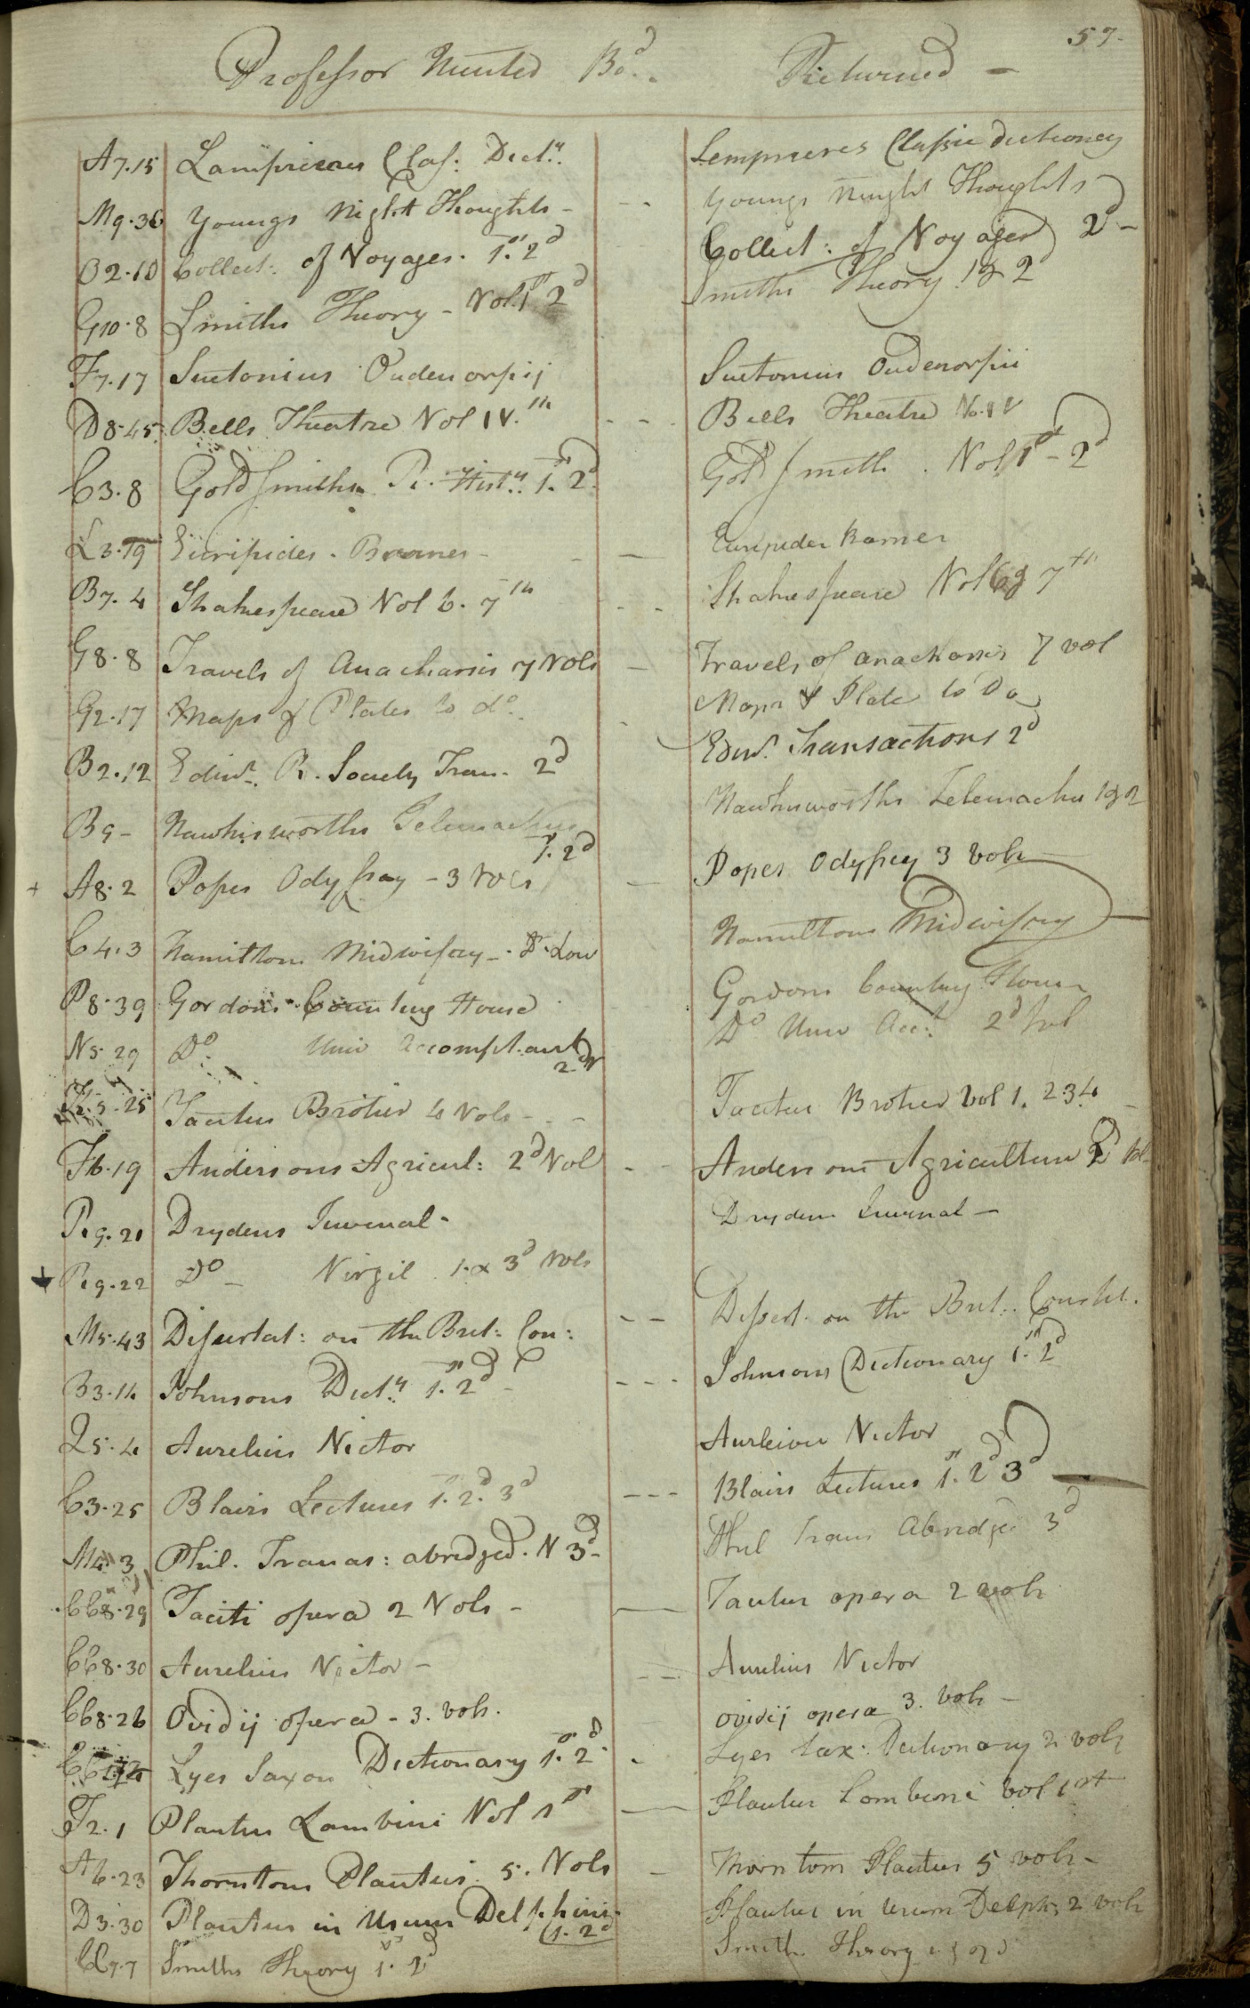 57-
Professor Hunter Bo.d.. Returned -
A7.15 Lamprieres Clas: Dict.y Lemprieres Classic dictionary
M9.36 Youngs Night Thoughts - - - Youngs Night Thoughts
O2.10 Collect: of Voyages. 1.st 2d Collect: of Voyages 2d -
G10.8 Smiths Theory - Vol.1st 2d Smiths Theory 1 & 2d
F7.17 Suetonius Oudenorpij Suetonius Oudenorpii
D8.45. Bells Theatre Vol IV.th - - - Bells Theatre Vo. IV
C3.8 Goldsmiths R. Hist.y 1.st 2d Goldsmith. Vol 1st - 2d
L3.19 Euripides. Barnes - - - Euripides Barnes
B7.4 Shakespeare Vol 6. 7th - - Shakespeare Vol 6 & 7th
G8.8 Travels of Anacharsis 7 Vols - Travels of Anacharsis 7 vol
G2.17 Maps & Plates to do. Maps & Plates to Do
B2.12 Edinr. R. Society Tran. 2d Edinr. Transactions 2d
B9- Hawkisworths Telemachus Hawkesworths Telemachus 1 & 2
1.st 2d
A8.2 Popes Odyssey - 3 Vols - Popes Odyssey 3 Vols
C4.3 Hamiltons Midwifery -. Dr. Low Hamiltons Midwifery
P8.39 Gordons Counting House Gordons Counting House
N5.29 Do: Univ Accomptant Do Univ Acc:t 2d Vol
2d V
5.25 Tacitus Brotier 4 Vols - - Tacitus Brotier Vol 1. 2 3 4 -
F6.19 Andersons Agricul: 2d Vol - - Andersons Agriculture 2d Vol
R9.21 Drydens Juvenal - Drydens Juvenal -
R9.22 Do - Virgil 1. & 3d Vols
M5.43 Dissertat: on the Brit: Con: - - Dissert. on the Brit.. Constit.
B3.14 Johnsons Dict.y 1.st 2d - - - - Johnsons Dictionary 1.st 2d
Q5.4 Aurelius Victor Aurleius Victor
C3.25 Blairs Lectures 1.st 2.d 3d - - - Blairs Lectures 1.st 2d 3d
M4.3 Phil. Tranas: abredged. V 3d - Phil Trans Abredge 3d
CC8.29 Taciti opera 2 Vols - - Tacitus opera 2 vols
CC8.30 Aurelius Victor - - - Aurelius Victor
CC8.26 Ovidij opera - 3. vols. Ovidij opera 3. vols -
Lyes Saxon Dictionary 1.st 2.d - Lyes Sax: Dictionary 2 vols
F2.1 Plautus Lambini Vol 1st - Plautus Lambini vol 1st
A6.23 Thorntons Plautus. 5. Vols - Thorntons Plautus 5 vols -
D3.30 Plautus in Usum Delphini Plautus in Usum Delph: 2 vols
1. 2d
CC7.7 Smiths Theory 1.st 2d Smiths Theory 1 & 2d